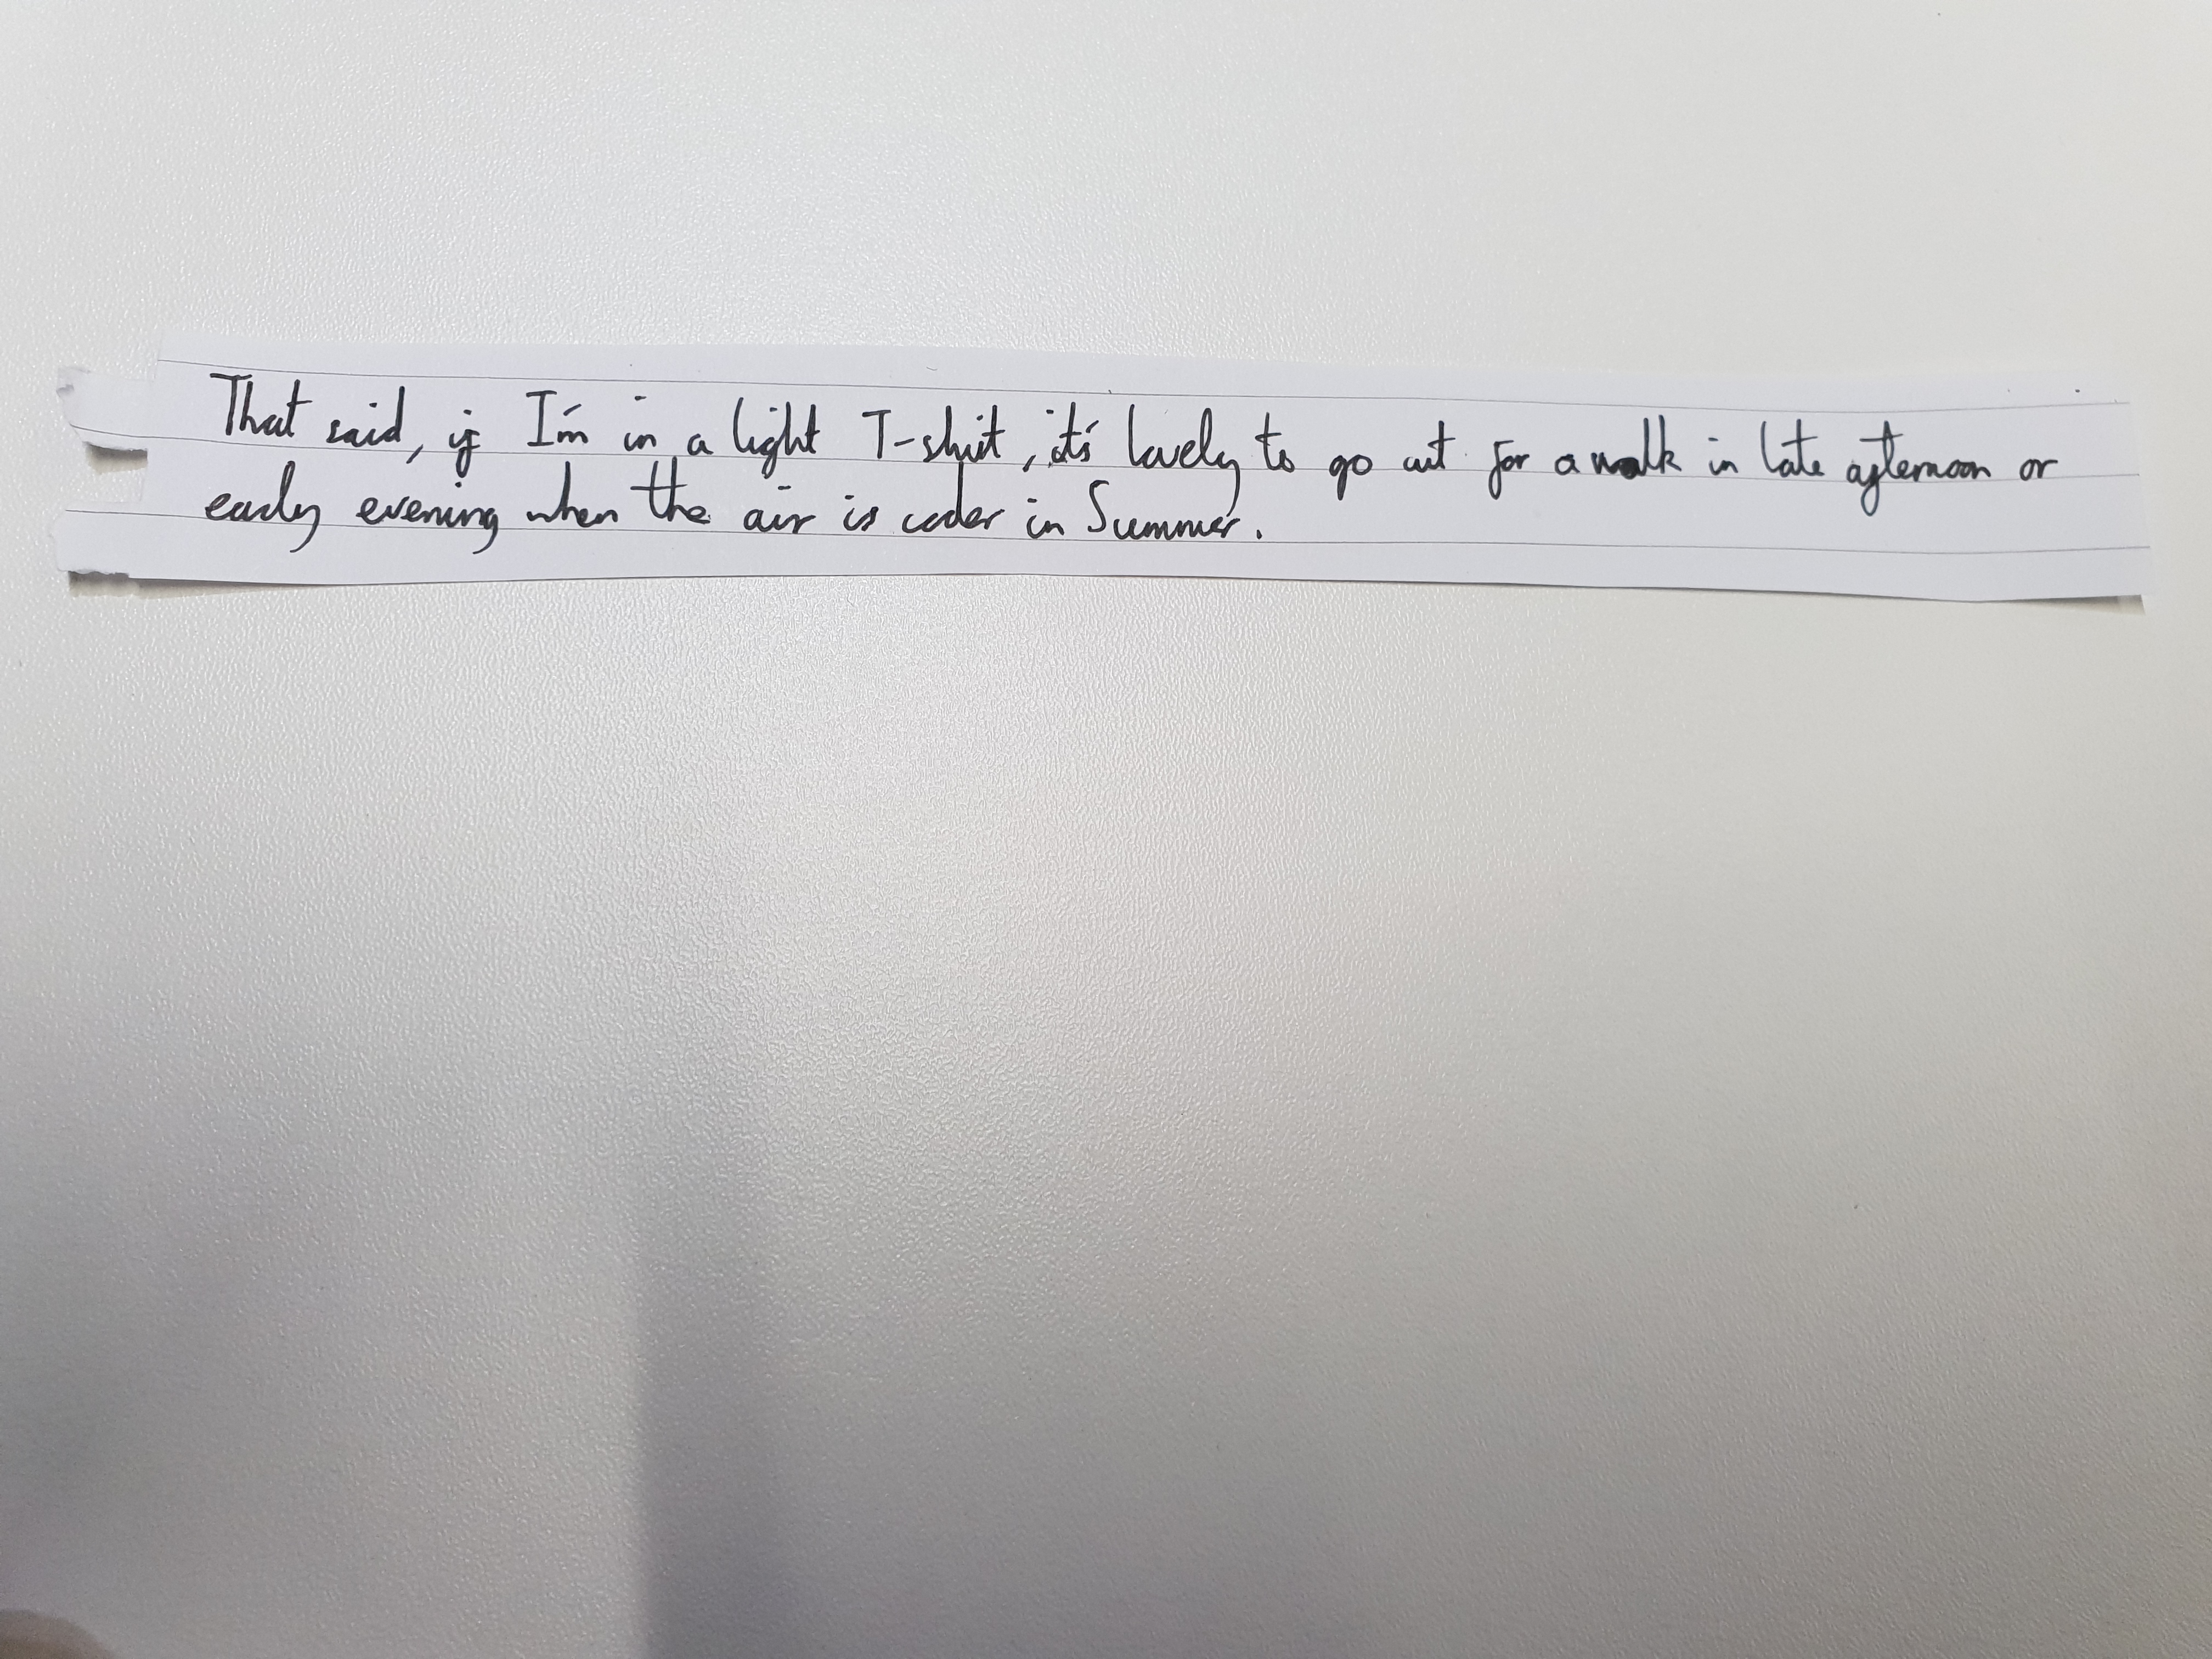 That said, if I'm in a light T-shirt, it's lovely to go out for a walk in late afternoon or
early evening when the air is cooler in Summer.